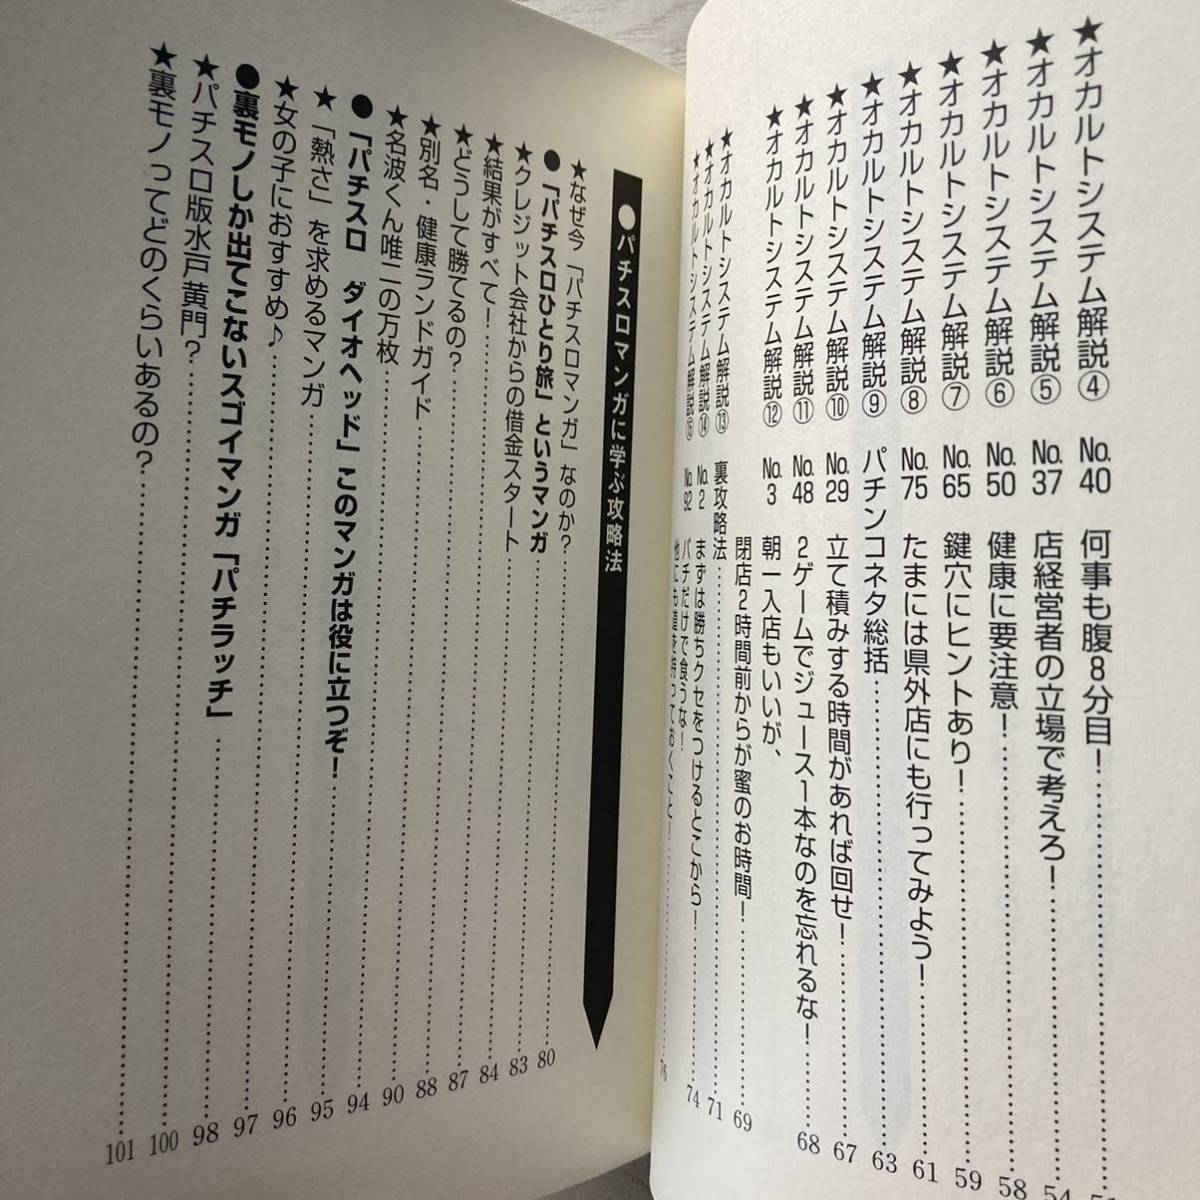 ★オカルトシステム解説④ No.40 何事も腹8分目!
★オカルトシステム解説⑤ No.37 店経営者の立場で考えろ! 54
★オカルトシステム解説⑥ No.50 健康に要注意! 58
★オカルトシステム解説⑦ No.65 鍵穴にヒントあり! 59
★オカルトシステム解説⑧ No.75 たまには県外店にも行ってみよう! 61
★オカルトシステム解説⑨ パチンコネタ総括 63
★オカルトシステム解説⑩ No.29 立て積みする時間があれば回せ! 67
★オカルトシステム解説⑪ No.48 2ゲームでジュース1本なのを忘れるな! 68
★オカルトシステム解説⑫ No.3 朝一入店もいいが、
閉店2時間前からが蜜のお時間! 69
★オカルトシステム解説⑬ 裏攻略法 71
★オカルトシステム解説⑭ No.2 まずは勝ちクセをつけるとこから! 74
★オカルトシステム解説⑮ No.92 パチだけで食うな!
他にも道を持っておくこと! 76
●パチスロマンガに学ぶ攻略法
★なぜ今「パチスロマンガ」なのか? 80
●「パチスロひとり旅」というマンガ 83
★クレジット会社からの借金スタート 84
★結果がすべて! 87
★どうして勝てるの? 88
★別名・健康ランドガイド 90
★名波くん唯一の万枚 94
●「パチスロ ダイオヘッド」このマンガは役に立つぞ! 95
★「熱さ」を求めるマンガ 96
★女の子におすすめ♪ 97
●裏モノしか出てこないスゴイマンガ「パチラッチ」 98
★パチスロ版水戸黄門? 100
★裏モノってどのくらいあるの? 101